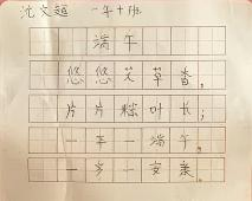 沈文越 一年十班
端午
悠悠艾草香，
片片粽叶长；
一年一端午，
一岁一安康。